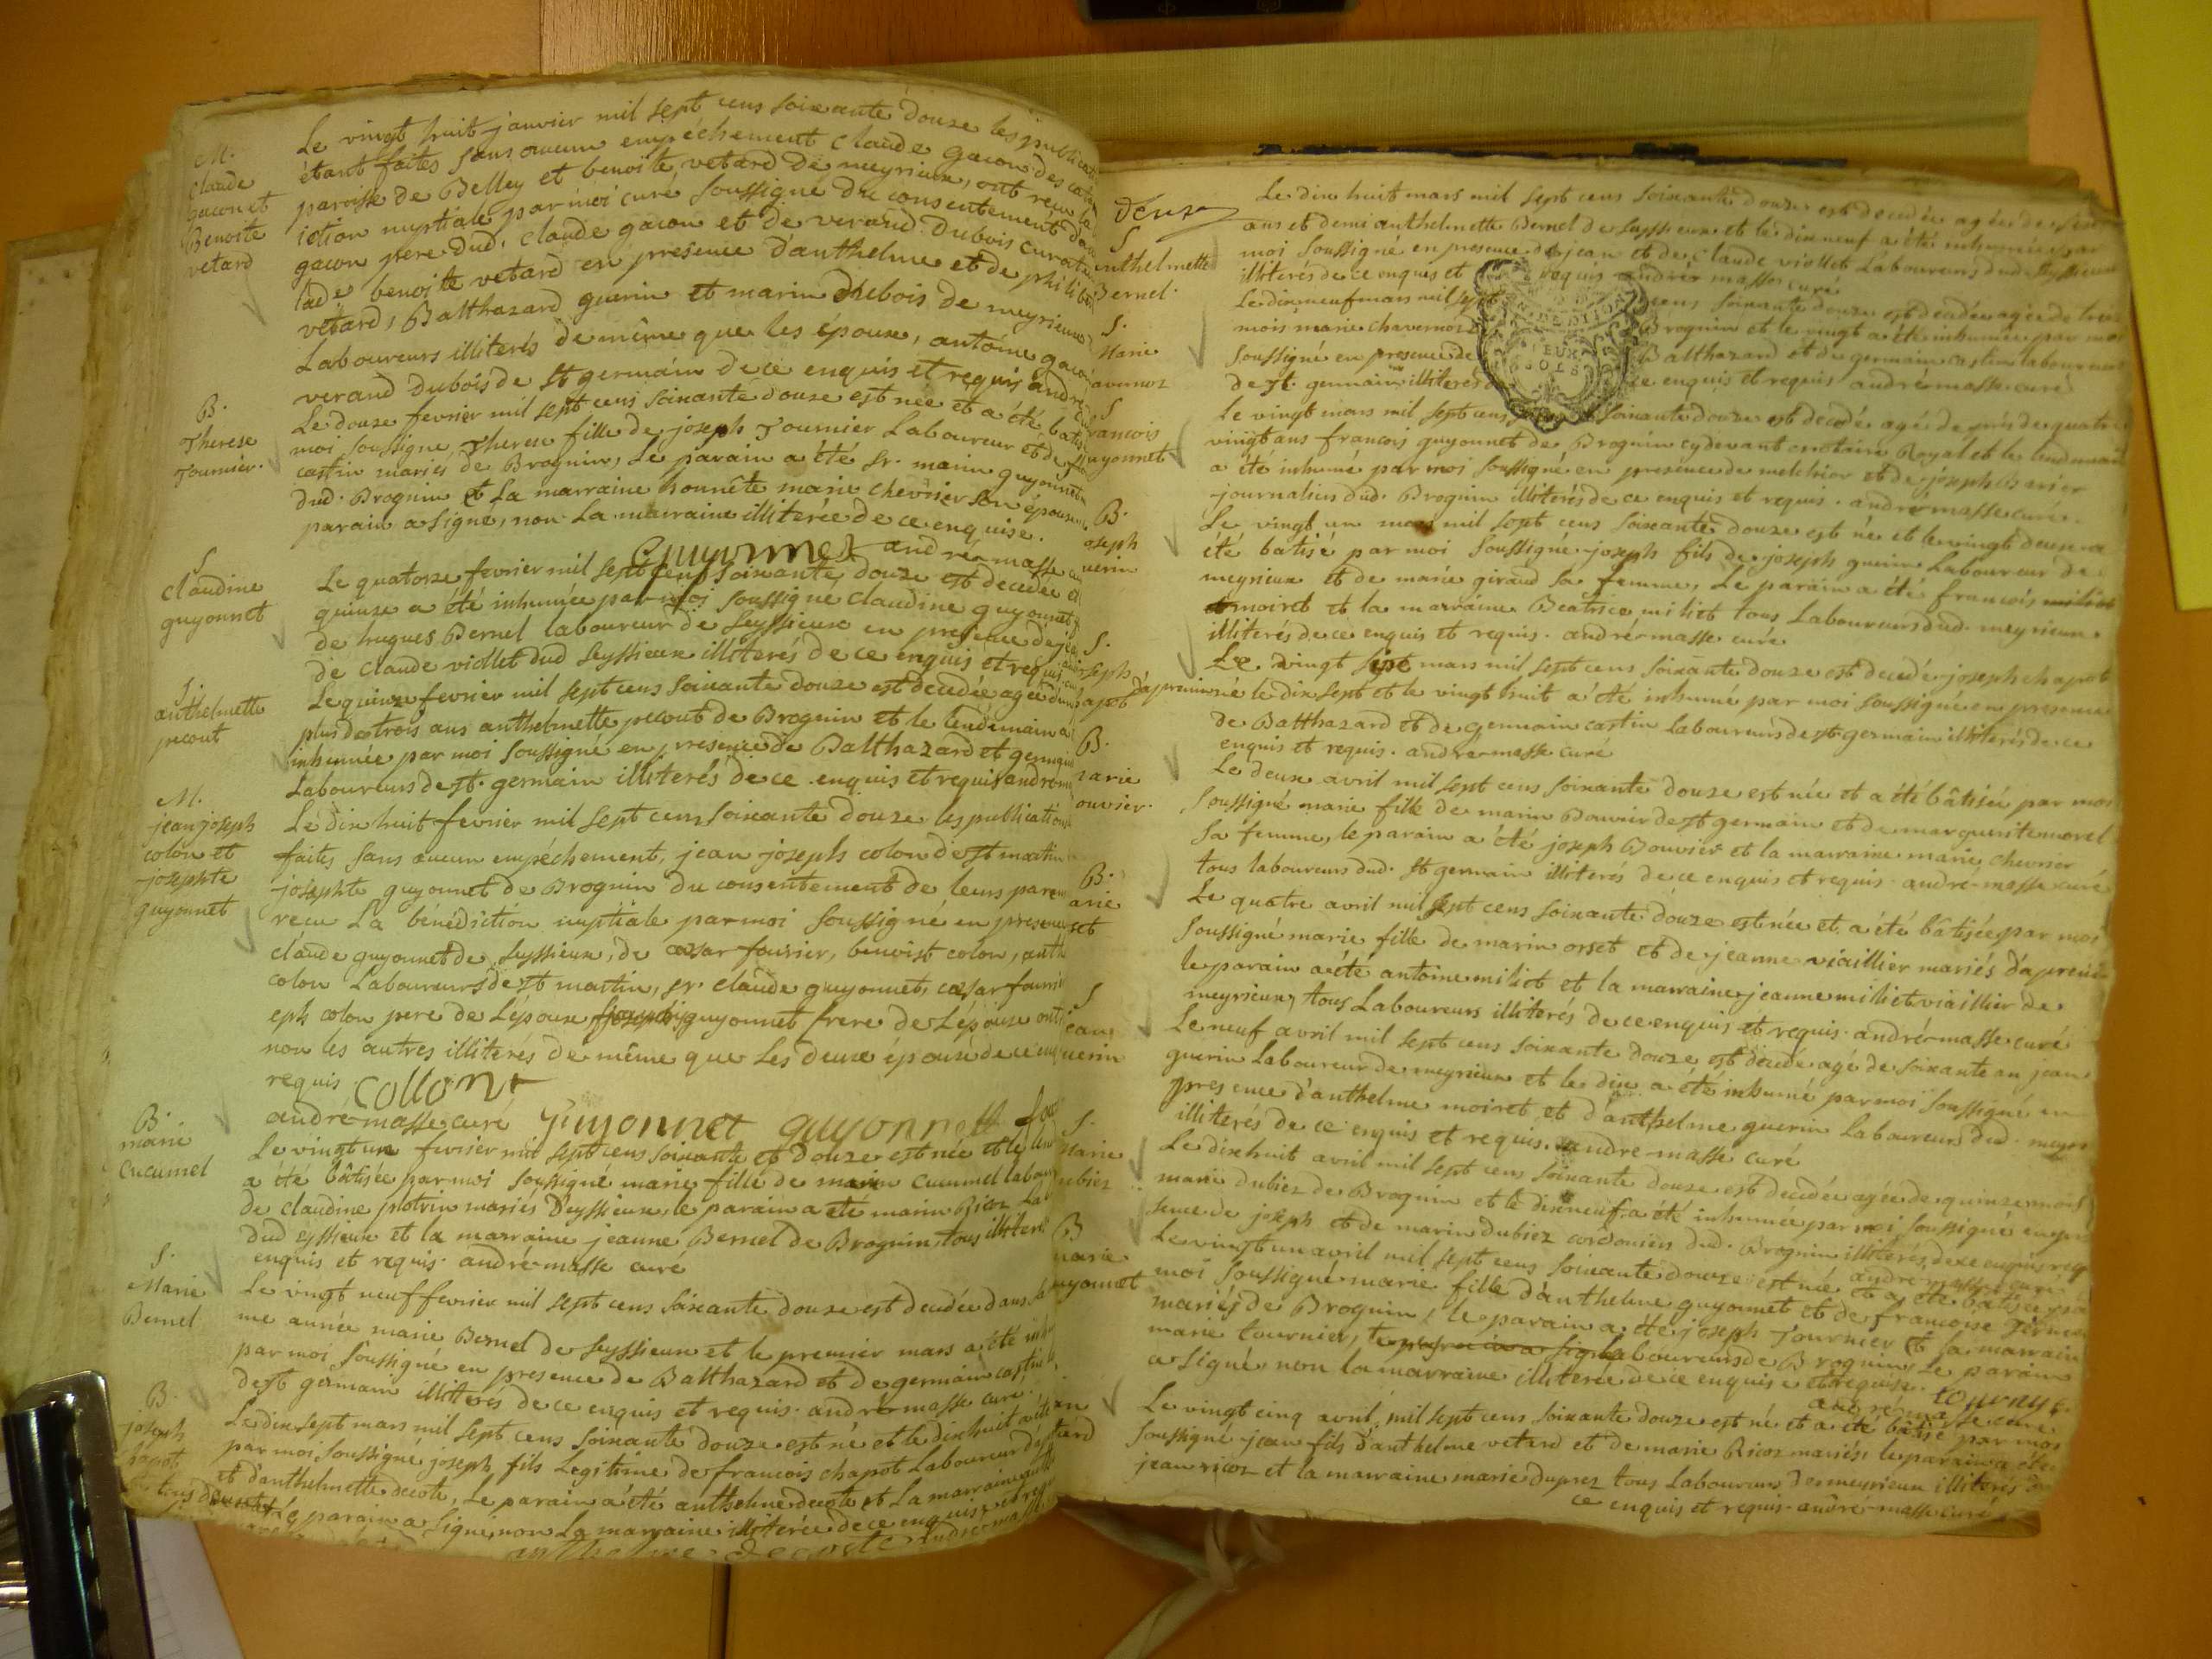 M.
claude
gacon et
Benoite
vetard
Le vingt huit janvier mil sept cens soixante douze les publicat
étant faites sans aucun empêchement claude gacon des
paroisse de Belley et benoite vetard de meyrieux, ont recu la
iction nuptiale par moi curé soussigné du consentement de
gacon pere dud. claude gacon et de verand Dubois curate
lade benoite vetard en presence d'anthelme et de philib
vetard, Balthazard guerin et marin Dubois de meyrieux
Laboureurs illiterés de même que les époux, antoine gacon
verand Dubois de st germain de ce enquis et requis andré
B.
Therese
Tournier.
Le douze fevrier mil sept cens soixante douze est née et a été bati
moi soussigné, Therese fille de joseph Tournier Laboureur et de
castin mariés de Brognin, le parain a été sr. marin guyonnet
dud. Brognin et la marraine honnête marie chevrier son épouse
parain a signé, non la marraine illiterée de ce enquise.
Guyonnet andré masse
S
claudine
guyonnet
Le quatorze fevrier mil sept cens soixante douze est decedée et
quinze a été inhumée par moi soussigné claudine guyonnet
de hugues Bernel laboureur de seyssieux en presence de
de claude viollet dud seyssieux illiterés de ce enquis et requis
S.
anthelmette
pecout
Le quinze fevrier mil sept cens soixante douze est decedée agée
plus de trois ans anthelmette pecout de Brognin et le lendemain a
inhumée par moi soussigné en presence de Balthazard et germain
Laboureurs de st. germain illiterés de ce enquis et requis andré
M.
jean joseph
colon et
josephte
guyonnet
Le dix huit fevrier mil sept cens soixante douze les publications
faites sans aucun empêchement, jean joseph colon de st martin
josephte guyonnet de Brognin du consentement de leurs paren
recu la bénédiction nuptiale par moi soussigné en presence
claude guyonnet de seyssieux, de cæsar fournier, benoist colon, anth
colon Laboureurs de st martin, sr. claude guyonnet, cæsar fourni
eph colon pere de l'époux joseph guyonnet frere de l'épouse ont
non les autres illiterés de même que les deux épouse de ce en
requis collont
andré masse curé Guyonnet guyonnet
B.
marie
Cucumel
Le vingt un fevrier mil sept cens soixante et douze est née et le lend
a été bâtisée par moi soussigné marie fille de marin Cucumel labour
de claudine plotrin mariés d'eyssieux, le parain a été marin Ricoz Lab
dud eyssieux et la marraine jeanne Bernel de Brognin, tous illiteré
enquis et requis. andré masse curé
S.
Marie
Bernel
Le vingt neuf fevrier mil sept cens soixante douze est decedée dans sa
me année marie Bernel de seyssieux et le premier mars a été inhu
par moi soussigné en presence de Balthazard et de germain castin
de st germain illiterés de ce enquis et requis. andré masse curé.
B.
joseph
chapot
Le dix sept mars mil sept cens soixante douze est né et le dix huit a été
par moi soussigné joseph fils Legitime de francois chapot Laboureur
et d'anthelmette decote, le parain a été anthelme decote et la marraine
parain a signé, non la marraine illiterée de ce enquise et req
anthelme decoste andré masse
Deuze
S
nthelmette
Bernel.
Le dix huit mars mil sept cens soixante douze est decedée agée de
ans et demi anthelmette Bernel de seyssieux et le dix neuf a été inhumée par
moi soussigné en presence de jean et de claude viollet Laboureurs dud. seyssieux
illiterés de ce enquis et requis andré masse curé
S.
Marie
avernoz
Le dix neuf mars mil sept cens soixante douze est decedée agée de treize
mois marie chavernoz Brognin et le vingt a été inhumée par moi
soussigné en presence de Balthazard et de germain castin laboureurs
de st. germain illiterés de ce enquis et requis andré masse curé
S
rancois
uyonnet
Le vingt mars mil sept cens soixante douze est decedé agé de près de quatre
vingt ans francois guyonnet de Brognin cydevant notaire Royal et le lendemain
a été inhumé par moi soussigné en presence de melchior et de joseph
journaliers dud. Brognin illiterés de ce enquis et requis. andré masse curé.
B.
oseph
uerin
Le vingt un mars mil sept cens soixante douze est né et le vingt deux a
été batisé par moi soussigné joseph fils de joseph guerin Laboureur de
meyrieux et de marie giraud sa femme, le parain a été francois
moiret et la marraine Beatrice miliet tous Laboureurs dud. meyrieux
illiterés de ce enquis et requis. andré masse curé
S.
oseph
hapot
Le vingt sept mars mil sept cens soixante douze est decedé joseph chapot
d'apremin né le dix sept et le vingt huit a été inhumé par moi soussigné en presence
de Balthazard et de germain castin Laboureurs de st germain illiterés de ce
enquis et requis. andré masse curé
B.
marie
ouvier.
Le deux avril mil sept cens soixante douze est née et a été bâtisée par moi
soussigné marie fille de marin Bouvier de st germain et de marguerite morel
sa femme, le parain a été joseph Bouvier et la marraine marie chevrier
tous laboureurs dud. st germain illiterés de ce enquis et requis. andré masse curé
B.
arie
rset
Le quatre avril mil sept cens soixante douze est née et a été bâtisée par moi
soussigné marie fille de marin orset et de jeanne viaillier mariés d'apremin
le parain a été antoine miliet et la marraine jeanne miliet viaillier de
meyrieux, tous Laboureurs illiterés de ce enquis et requis. andré masse curé
S
jean
uerin
Le neuf avril mil sept cens soixante douze est decedé agé de soixante an jean
guerin Laboureur de meyrieux et le dix a été inhumé par moi soussigné en
presence d'anthelme moiret et d'anthelme guerin Laboureurs dud. meyri
illiterés de ce enquis et requis. andré masse curé
S.
Marie
ubiez
Le dix huit avril mil sept cens soixante douze est decedée agée de quinze mois
marie dubiez de Brognin et le dix neuf a été inhumée par moi soussigné en pre
sence de joseph et de marin dubiez cordoniers dud. Brognin illiterés de ce enquis req
andré masse curé
B
marie
uyonnet
Le vingt un avril mil sept cens soixante douze est née et a été batisée par
moi soussigné marie fille d'anthelme guyonnet et de francoise
mariés de Brognin, le parain a été joseph Tournier et la marrain
marie tournier, le parain a signé laboureurs de Brognin, Le parain
a signé non la marraine illiterée de ce enquise et requise. tournyé
andré masse curé
an
tard
Le vingt cinq avril mil sept cens soixante douze est né et a été batisé par moi
soussigné jean fils d'anthelme vetard et de marie Ricoz mariés, le parain a été
jean ricoz et la marraine marie duprez tous Laboureurs de meyrieux illiterés de
ce enquis et requis. andré masse curé